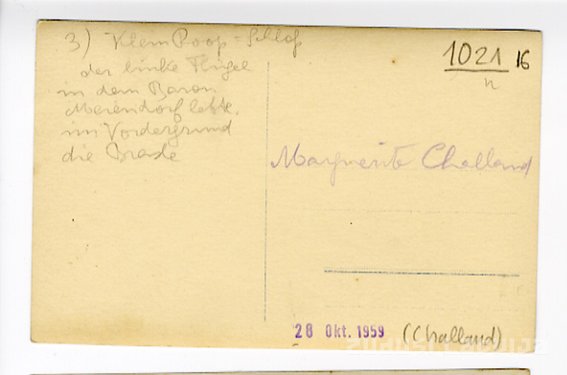 3) Klein Roop-Schloß
der linke Flügel
in dem Baron
Meiendorf lebte,
im Vordergrund
die Brasle
1021 16
n
Marguerite Challand
28 Okt. 1959 (Challand)